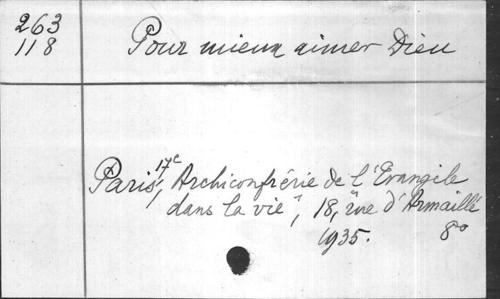 263
118
Pour mieux aimer Dieu
Paris, 17e, Archiconfrérie de l'"Evangile
dans la vie", 18, rue d'Armaillé
1935. 8°